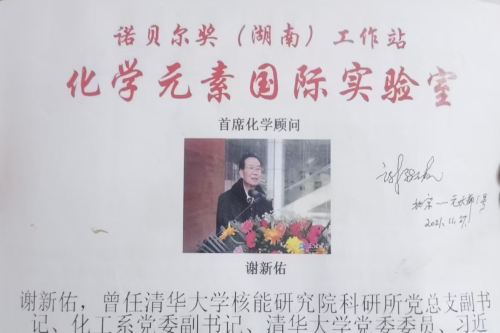 诺贝尔奖（湖南）工作站
化学元素国际实验室
首席化学顾问
谢新佑
2021.11.27
谢新佑，曾任清华大学核能研究院科研所党总支副书
记、化工系党委副书记、清华大学党委委员、习近